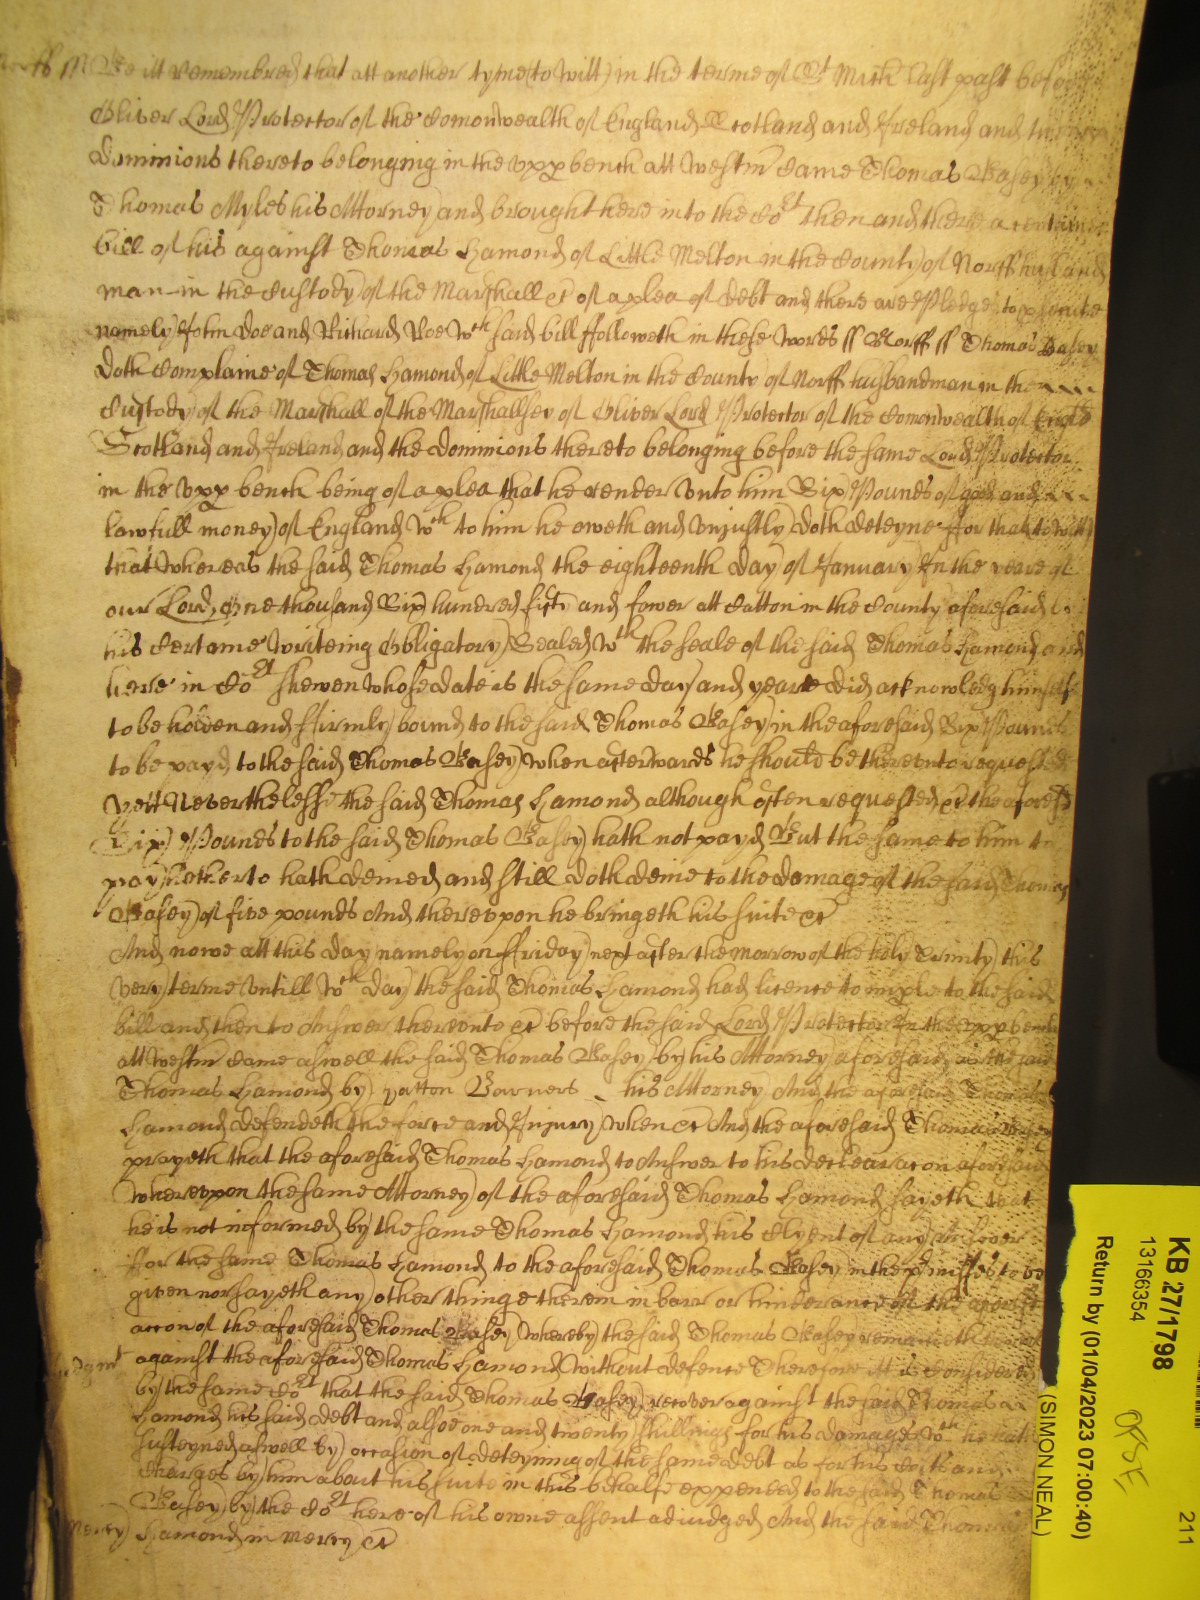 Norff ss Be itt remembred that att another tyme (to witt) in the terme of St Mich last past before
Oliver Lord Protector of the Comonwealth of England Scotland and Ireland and the
Dominions thereto belonging in the vpp bench att Westm Came Thomas Basey by
Thomas Myles his Attorney and brought here into the Cort then and there a certaine
bill of his against Thomas Hamond of Little Melton in the County of Norff husband
man in the Custody of the Marshall &c of a plea of debt and there are Pledges to psecute
namely John Doe and Richard Roe Wch said bill ffolloweth in these words ss Norff ss Thomas Basey
doth Complaine of Thomas Hamond of Little Melton in the County of Norff husbandman in the
Custody of the Marshall of the Marshallsey of Oliver Lord Protector of the Comonwealth of Engld
Scotland and Ireland and the dominions thereto belonging before the same Lord Protector
in the vpp bench being of a plea that he render vnto him Six Pounds of good and
lawfull money of England Wch to him he oweth and vniustly doth deteyne for that to witt
that Whereas the said Thomas Hamond the eighteenth day of January In the yeare of
our Lord One thousand Six hundred fifty and fower att Catton in the County aforesaid
his Certaine Writeing Obligatory Sealed Wth the seale of the said Thomas Hamond and
here in Cort shewen whose date is the same day and yeare did acknowledg himself
to be holden and ffirmly bound to the said Thomas Basey in the aforesaid Six Pounds
to be payd to the said Thomas Basey when afterwards he should be therevnto requested
yett Neverthelesse the said Thomas Hamond although often requested &c the aforesd
Six Pounds to the said Thomas Basey hath not payd But the same to him to
pay hitherto hath denied and still doth denie to the damage of the said Thomas
Basey of five pounds And therevpon he bringeth his suite &c
And nowe att this day namely on ffriday next after the morrow of the holy Trinity this
very terme vntill Wch day the said Thomas Hamond had licence to imple to the said
bill and then to Answer therevnto &c before the said Lord Protector In the vpp bench
att Westm Came aswell the said Thomas Basey by his Attorney aforesaid as the said
Thomas Hamond by yatton Varners his Attorney And the aforesaid Thomas
Hamond defendeth the force and Injury when &c And the aforesaid Thomas Basey
prayeth that the aforesaid Thomas Hamond to Answer to his declearacon aforesaid
Wherevpon the same Attorney of the aforesaid Thomas Hamond sayeth that
he is not informed by the same Thomas Hamond his Clyent of any answer
for the same Thomas Hamond to the aforesaid Thomas Basey in the pmisses to be
given nor sayeth any other thinge therein in barr or hinderance of the aforesd
accon of the aforesaid Thomas Basey Whereby the said Thomas Basey remaineth
Judgmt against the aforesaid Thomas Hamond Without defence Therefore itt is Considered
by the same Cort that the said Thomas Basey recover against the said Thomas
Hamond his said debt and alsoe one and twenty shillings for his damages Wch he hath
susteyned aswell by occasion of deteyning of the same debt as for his Costs and
Charges by him about his suite in this behalfe expended to the said Thomas
Basey by the Cort here of his owne assent adiudged And the said Thomas
Mercy Hamond in Mercy &c
KB 27/1798
13166354
Return by (01/04/2023 07:00:40)
(SIMON NEAL)
211